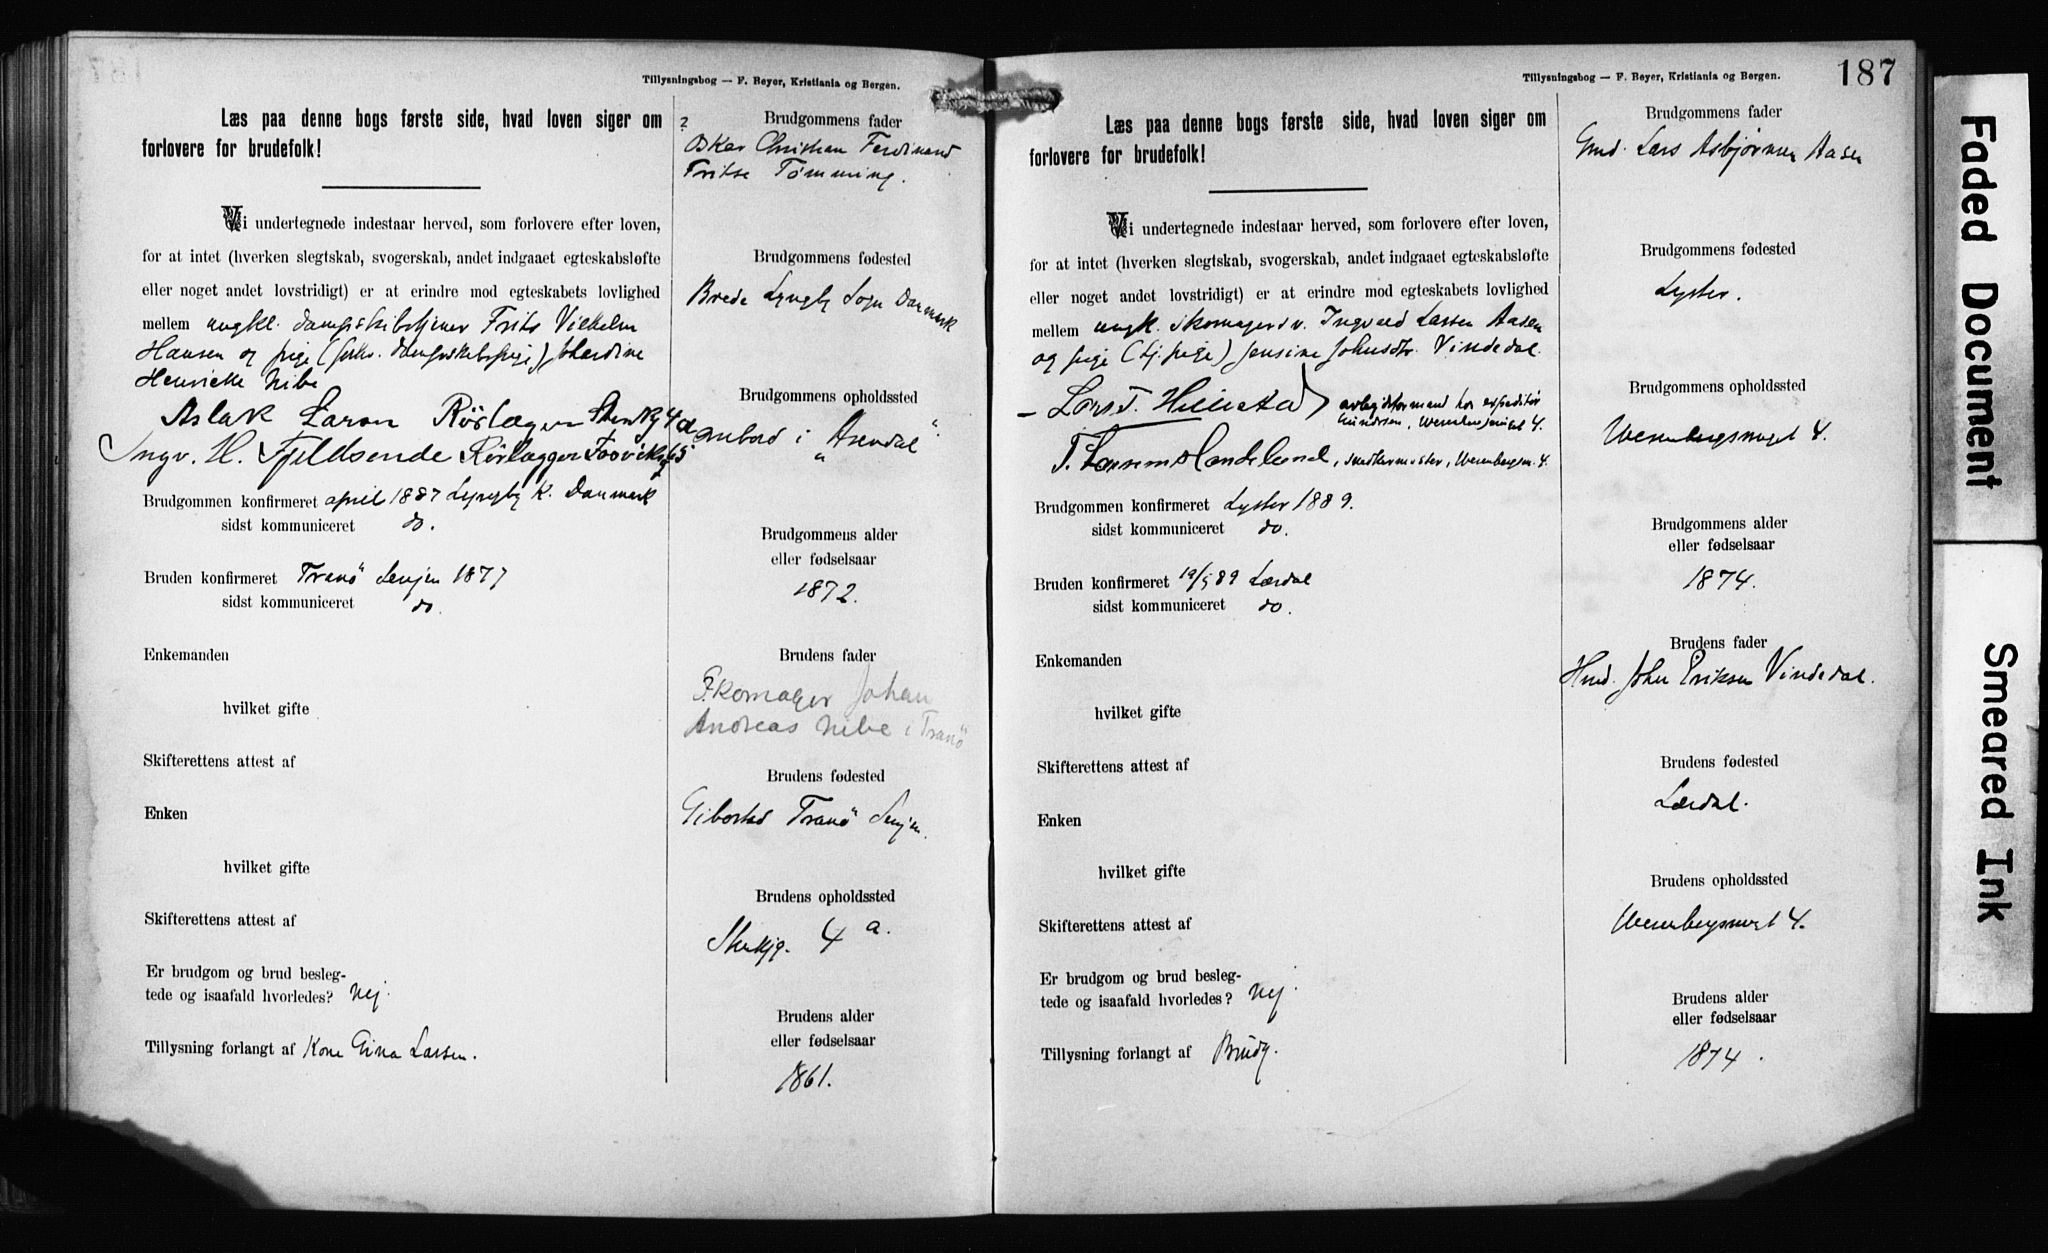 Tillysningsbog — F. Beyer, Kristiania og Bergen.
Læs paa denne bogs første side, hvad loven siger om
forlovere for brudefolk!
Vi undertegnede indestaar herved, som forlovere efter loven,
for at intet (hverken slegtskab, svogerskab, andet indgaaet egteskabsløfte
eller noget andet lovstridigt) er at erindre mod egteskabets lovlighed
mellem ungkl. dampskibstjener Frits Vilhelm
Hansen og pige (forhv. dampskibspige)
Henrikke Nibe
Aslak Larsen Rørlægger 4 a
Ingv. H. Fjeldsende Rørlægger 65
Brudgommen konfirmeret april 1887 Lyngby K. Danmark
sidst kommuniceret do.
Bruden konfirmeret Tranö Senjen 1877
sidst kommuniceret do.
Enkemanden
hvilket gifte
Skifterettens attest af
Enken
hvilket gifte
Skifterettens attest af
Er brudgom og brud besleg-
tede og isaafald hvorledes? Nej.
Tillysning forlangt af Kone Gina Larsen.
Brudgommens fader
?
Oskar Christian Ferdinand
Fritse Tømming.
Brudgommens fødested
Brede Lyngby Sogn Danmark
Brudgommens opholdssted
ombord i "Arendal"
Brudgommens alder
eller fødselsaar
1872.
Brudens fader
Skomager Johan
Andreas Nibe i Tranö
Brudens fødested
Gibostad Tranö Senjen.
Brudens opholdssted
4 a.
Brudens alder
eller fødselsaar
1861.
Tillysningsbog — F. Beyer, Kristiania og Bergen.
187
Læs paa denne bogs første side, hvad loven siger om
forlovere for brudefolk!
Vi undertegnede indestaar herved, som forlovere efter loven,
for at intet (hverken slegtskab, svogerskab, andet indgaaet egteskabsløfte
eller noget andet lovstridigt) er at erindre mod egteskabets lovlighed
mellem ungk. skomagersv. Ingvald Larsen Aasen
og pige (tj.pige) Jensine Johnsdtr. Vindedal.
Lars T. arbeidsformand hos expeditør
Gundersen, 4.
T. Larsen , snedkermester, Wesenbergsm. 4.
Brudgommen konfirmeret Lyster 1889.
sidst kommuniceret do.
Bruden konfirmeret 19/5 89 Lærdal
sidst kommuniceret do.
Enkemanden
hvilket gifte
Skifterettens attest af
Enken
hvilket gifte
Skifterettens attest af
Er brudgom og brud besleg-
tede og isaafald hvorledes? Nej.
Tillysning forlangt af Brudg.
Brudgommens fader
Gmd. Lars Asbjørnsen Aasen
Brudgommens fødested
Lyster.
Brudgommens opholdssted
Wesenbergsmuget 4.
Brudgommens alder
eller fødselsaar
1874.
Brudens fader
Hmd. John Eriksen Vindedal.
Brudens fødested
Lærdal.
Brudens opholdssted
Wesenbergsmuget 4.
Brudens alder
eller fødselsaar
1874.
Faded Document
Smeared Ink